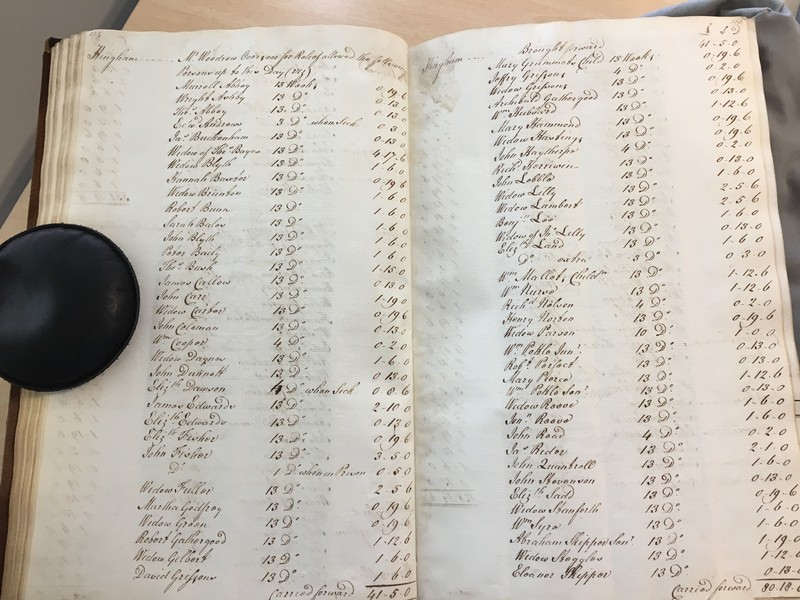 Hingham Mr Woodrow Overseer for Relief allowed the following
Persons up to this Day (viz)
Murrell Abboy 13 Weeks 0 19 6
Wright Ashby 13 Do 0 13 0
Thos Abboy 13 Do 0 13 0
Edwd Andrews 3 Do when Sick 0 3 0
Jas Buckenham 13 Do 0-13-0
Widow of Thos Bayne 13 Do 4-17-6
Widow Blyth 13 Do 1-6-0
Hannah Baxter 13 Do 0 19 6
Widow Brunton 13 Do 1 6 0
Robert Bunn 13 Do 1 6 0
Sarah Bales 13 Do 1-6 0
John Blyth 13 Do 1 6 0
Peter Baily 13 Do 1 6 0
Thos Bush 13 Do 1-15-0
James Callow 13 Do 0 13-0
John Carr 13 Do 1-19 0
Widow Carter 13 Do 0-19 6
John Coleman 13 Do 0-13-0
Wm Cooper 4 Do 0-2-0
Widow Daynes 13 Do 1-6-0
John Dunnott 13 Do 0 13-0
Elizth Dawson 4 Do when Sick 0 8 6
James Edwards 13 Do 2-10 0
Elizth Edwards 13 Do 0-13-0
Elizth Fisher 13 Do 0 19 6
John Fisher 13 Do 3-5-0
Do 1 Do when in Prison 0-5-0
Widow Fuller 13 Do 2-5 6
Martha Godfroy 13 Do 0 19 6
Widow Green 13 Do 0 19 6
Robert Gathergood 13 Do 1-12 6
Widow Gilbert 13 Do 1-6-0
David Grefsons 13 Do 1-6-0
Carried forward 41-5-0
£ S D
Hingham Brought forward 41-5-0
Mary Grummotts Child 13 Weeks 0-19-6
Joffry Grefsons 4 Do 0-2-0
Widow Grefsons 13 Do 0-19-6
Archibd Gathergood 13 Do 0-13-0
Wm Hubbard 13 Do 1-12-6
Mary Hammond 13 Do 0-19-6
Widow Hawkins 13 Do 0-19-6
John Haythorpe 4 Do 0-2-0
Richd Harrison 13 Do 0-13-0
John Lebble 13 Do 1-6-0
Widow Lilly 13 Do 2-5-6
Widow Lambert 13 Do 2-5 6
Benjn Lee 13 Do 1-6-0
Widow of Jno Lilly 13 Do 0-13-0
Elizth Land 13 Do 1-6 0
Do extra 3 Do 0 3 0
Wm Mallot's Childn 13 Do 1-12-6
Wm Nurse 13 Do 1-12-6
Richd Nelson 4 Do 0-2-0
Henry Norton 13 Do 0-19-6
Widow Parson 10 Do 1-0-0
Wm Peklo Junr 13 Do 0-13-0
Robt Perfect 13 Do 0 13-0
Mary Pierce 13 Do 1-12-6
Wm Peklo Senr 13 Do 0-13-0
Widow Reeve 13 Do 1-6-0
Jno Reeve 13 Do 1-6-0
John Read 4 Do 0-2-0
Jas Reder 13 Do 2-1-0
John Quantrell 13 Do 1-6-0
John Stevenson 13 Do 0-13-0
Elizth Sadd 13 Do 0-19-6
Widow Stanforth 13 Do 1-6-0
Wm Syra 13 Do 1-6-0
Abraham Skipper Senr 13 Do 1-19-0
Widow Steggles 13 Do 1-12-
Eleanor Skipper 13 Do 0-13-0
Carried forward 80-18-